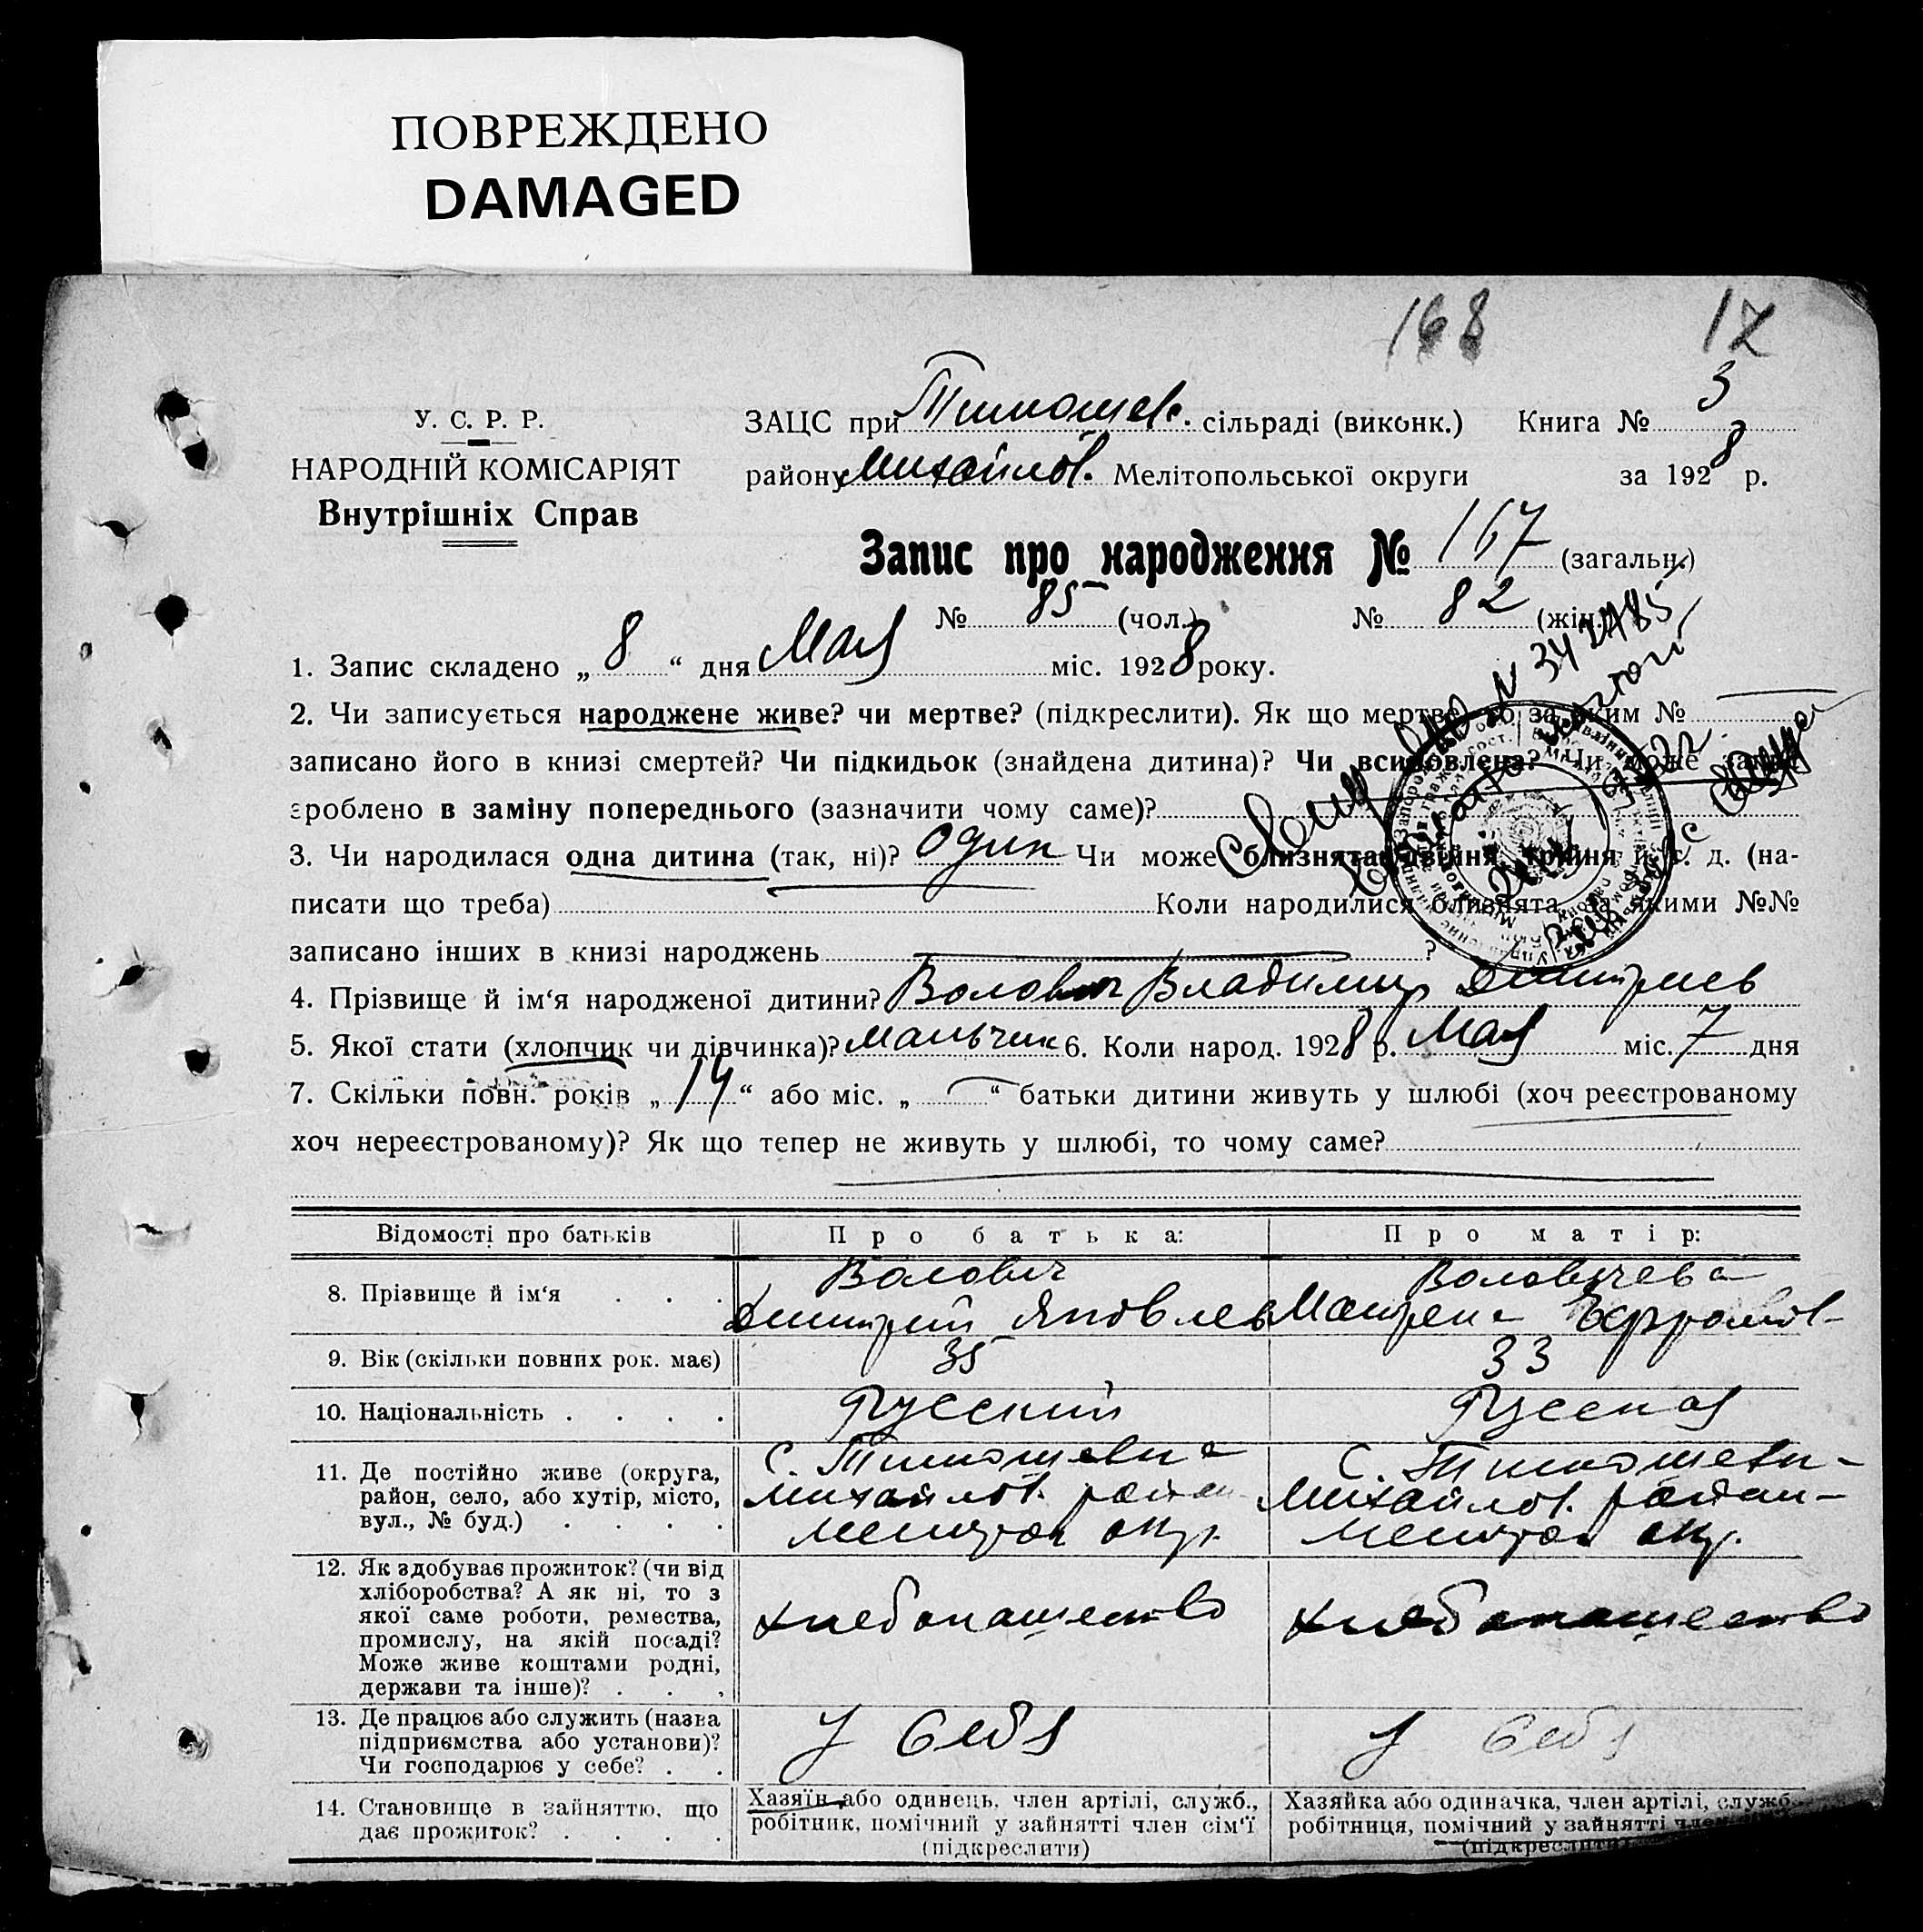 ПОВРЕЖДЕНО
DAMAGED
168 17
У. С. Р. Р.
НАРОДНІЙ КОМІСАРІЯТ
Внутрішніх Справ
ЗАЦС при Тимошев. сільраді (виконк.) Книга № 3
району Михайлов. Мелітопольської округи за 1928 р.
Запис про народження № 167 (загальн.)
№ 85 (чол.) № 82 (жін.)
1. Запис складено „ 8 “ дня Мая міс. 1928 року.
2. Чи записується народжене живе? чи мертве? (підкреслити). Як що мертве, то за яким №
записано його в книзі смертей? Чи підкидьок (знайдена дитина)? Чи всиновлена? Чи може запис
зроблено в заміну попереднього (зазначити чому саме)?
3. Чи народилася одна дитина (так, ні)? один Чи може близнята, двійня, трійня й т. д. (на-
писати що треба) Коли народилися близнята, за якими №№
записано інших в книзі народжень ?
4. Прізвище й ім‘я народженої дитини? Волович Владимир Дмитриев
5. Якої стати (хлопчик чи дівчинка)? мальчик 6. Коли народ. 1928 р. Мая міс. 7 дня
7. Скільки повн. років „ 14 “ або міс. „ “ батьки дитини живуть у шлюбі (хоч реєстрованому
хоч нереєстрованому)? Як що тепер не живуть у шлюбі, то чому саме?
Відомості про батьків Про батька: Про матір:
8. Прізвище й ім‘я . . . Волович Воловичева
Дмитрий Яковлев Матрена Ефромов-
9. Вік (скільки повних рок. має) 35 33
10. Національність . . . . Русский Русская
11. Де постійно живе (округа,
район, село, або хутір, місто,
вул., № буд.) . . . .
с. Тимошевка
Михайлов. район
Мелитоп окр.
с. Тимошевк-
Михайлов. район-
Мелитоп окр.
12. Як здобуває прожиток? (чи від
хліборобства? А як ні, то з
якої саме роботи, ремества,
промислу, на якій посаді?
Може живе коштами родні,
держави та інше)? . . .
хлебопашество хлебопашество
13. Де працює або служить (назва
підприємства або установи)?
Чи господарює у себе? . .
у себя у себя
14. Становище в зайняттю, що
дає прожиток? . . . .
Хазяїн або одинець, член артілі, служб.,
робітник, помічний у зайнятті член сім‘ї
(підкреслити)
Хазяйка або одиначка, член артілі, служб.
робітниця, помічний у зайнятті член
(підкреслити)